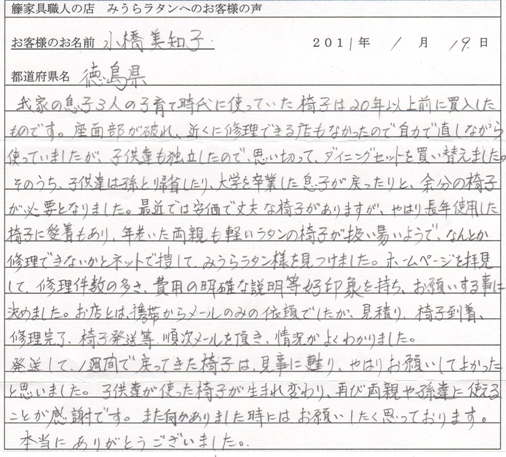 籐家具職人の店　みうらラタンへのお客様の声
お客様のお名前 小橋美知子　2011年 1月 19日
都道府県名 徳島県
我家の息子3人の子育て時代に使っていた椅子は20年以上前に買入した
ものです。座面部が破れ、近くに修理できる店もなかったので自力で直しながら
使っていましたが、子供達も独立したので、思い切って、ダイニングセットを買い替えました。
そのうち、子供達は孫と帰省したり、大学を卒業した息子が戻ったりと、余分の椅子
が必要となりました。最近では安価で丈夫な椅子がありますが、やはり長年使用した
椅子に愛着もあり、年老いた両親も軽いラタンの椅子が扱い易いようで、なんとか
修理できないかとネットで捜して、みうらラタン様を見つけました。ホームページを拝見
して、修理件数の多さ、費用の明確な説明等好印象を持ち、お願いする事に
決めました。お店とは、携帯からメールのみの依頼でしたが、見積り、椅子到着、
修理完了、椅子発送等、順次メールを頂き、情況がよくわかりました。
発送して、1週間で戻ってきた椅子は、見事に甦り、やはりお願いしてよかった
と思いました。子供達が使った椅子が生まれ変わり、再び両親や孫達に使える
ことが感謝です。また何かありました時にはお願いしたく思っております。
本当にありがとうございました。